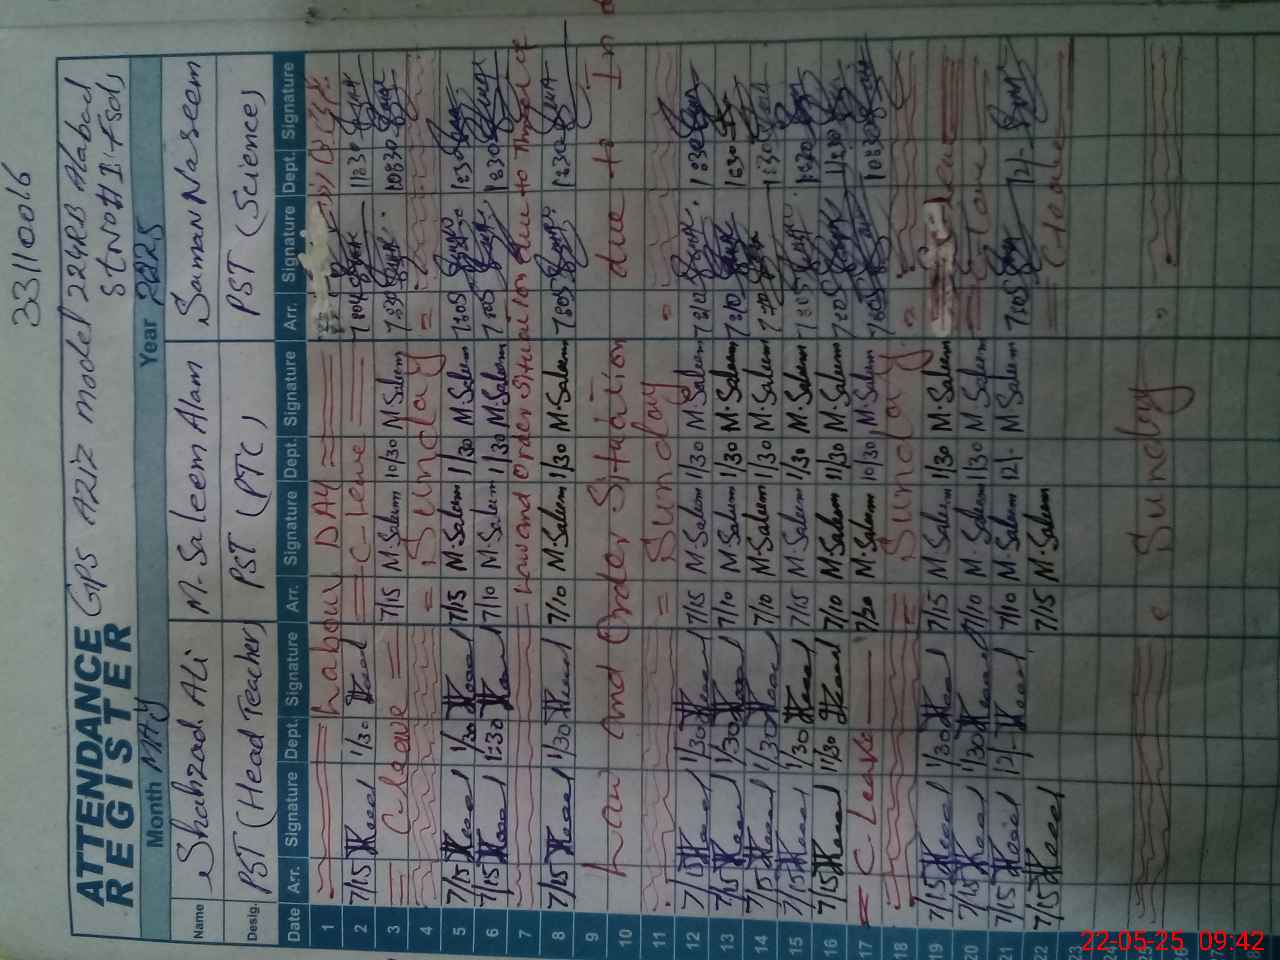 33110016
ATTENDANCE REGISTER
GPS Aziz model 224RB Alabad
St No #1 Fsd,
Month May Year 2025
Name Shahzad Ali M. Saleem Alam Saman Naseem
Desig. PST (Head Teacher) PST (PTC) PST (Science)
Date Arr. Signature Dept. Signature Arr. Signature Dept. Signature Arr. Signature Dept. Signature
1 Labour DAY
2 7/15 1/30 C-Leave 7:04 11:30
3 C-Leave 7/15 M.Saleem 10/30 M.Saleem 7:30 10:30
4 Sunday
5 7/15 1/30 7/15 M.Saleem 1/30 M.Saleem 7:05 1:30
6 7/15 1:30 7/10 M.Saleem 1/30 M.Saleem 7:05 1:30
7 Law and Order Situation due to
8 7/15 1/30 7/10 M.Saleem 1/30 M.Saleem 7:05 1:30
9
10 Law and Order Situation due to In
11 Sunday
12 7/15 1/30 7/15 M.Saleem 1/30 M.Saleem 7:10 1:30
13 7/15 1/30 7/10 M.Saleem 1/30 M.Saleem 7:10 1:30
14 7/15 1/30 7/10 M.Saleem 1/30 M.Saleem 1:30
15 7/15 1/30 7/15 M.Saleem 1/30 M.Saleem 7:05 1:30
16 7/15 11/30 7/10 M.Saleem 11/30 M.Saleem 7:05 11:30
17 C Leave 7/20 M.Saleem 10/30 M.Saleem 7:05 10:30
18 Sunday
19 7/15 1/30 7/15 M.Saleem 1/30 M.Saleem Leave
20 7/15 1/30 7/10 M.Saleem 1/30 M.Saleem
21 7/15 12/- 7/10 M.Saleem 12/- M.Saleem 7:05 12/-
22 7/15 7/15 M.Saleem
23
24
25 Sunday
26
27
22-05-25 09:42